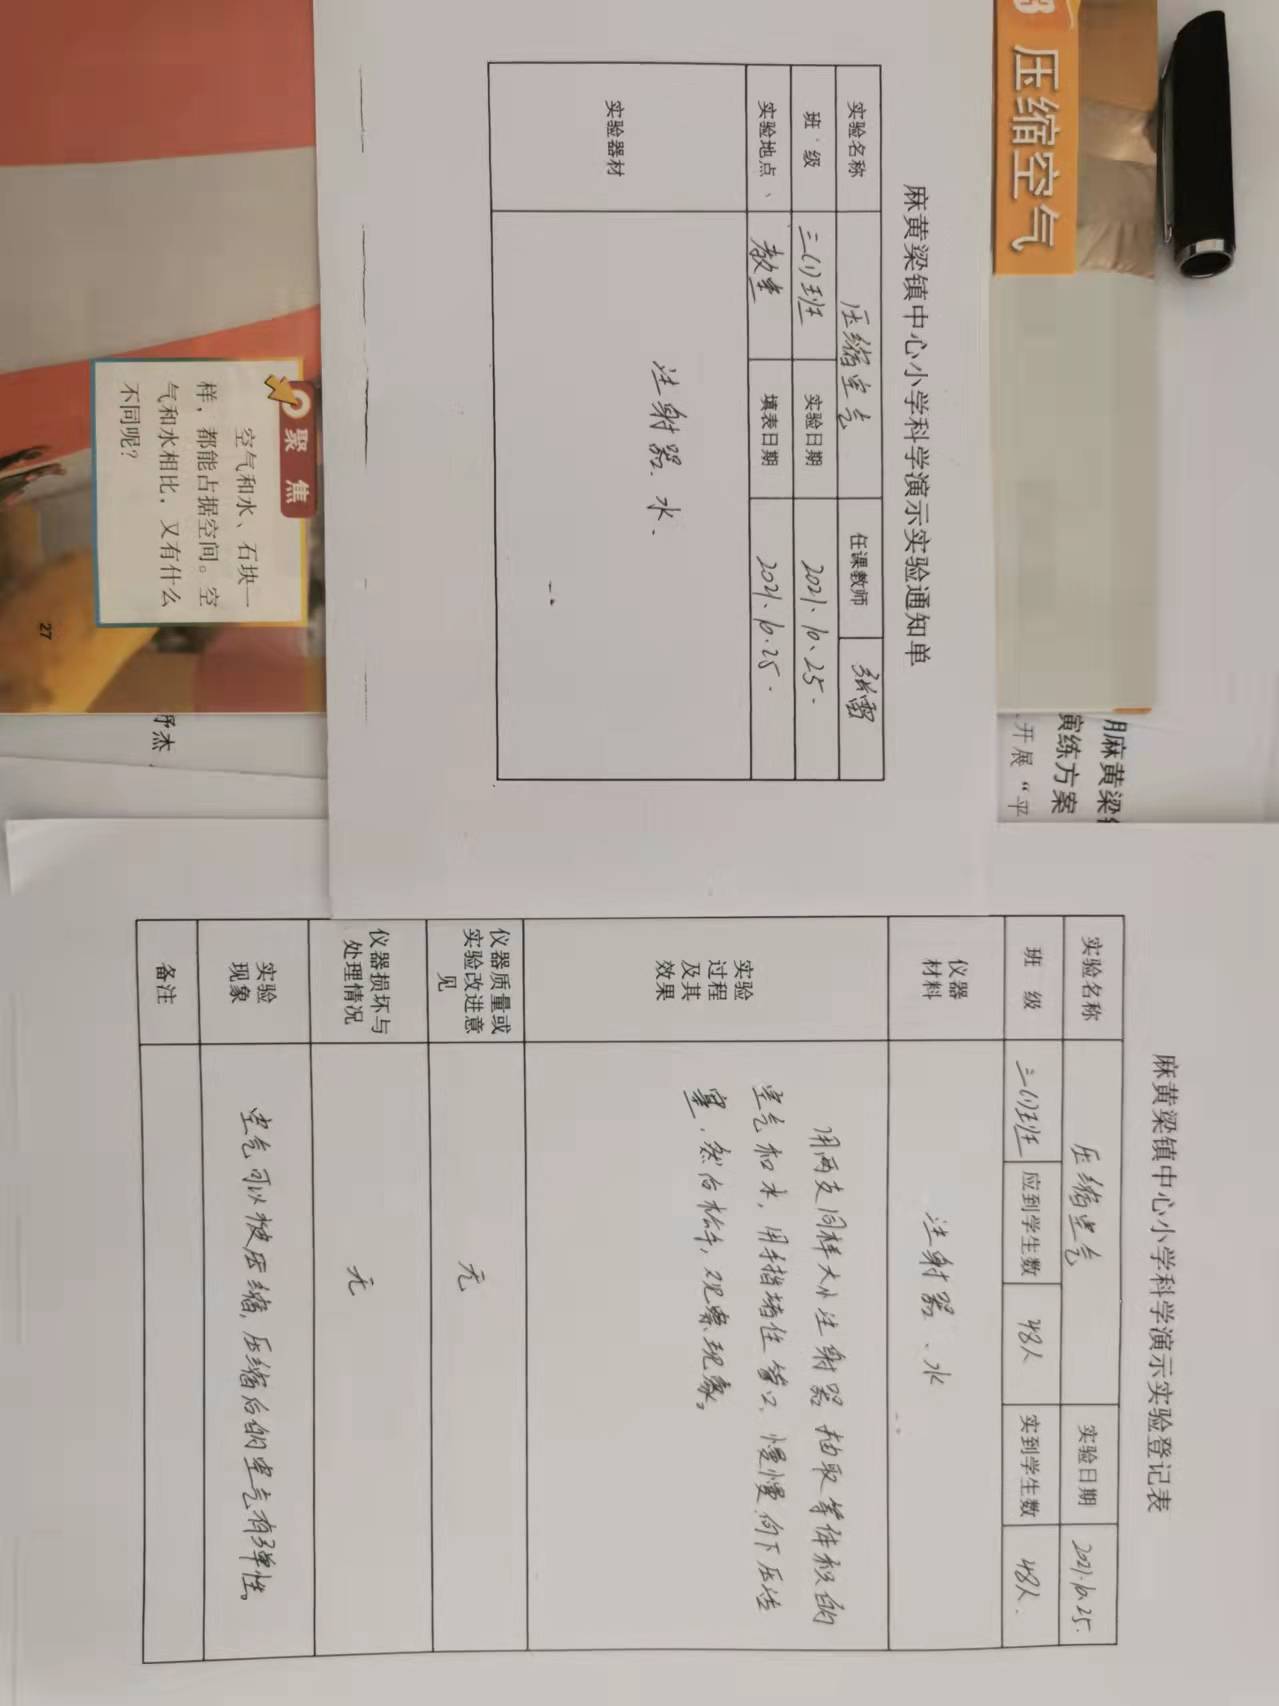 3 压缩空气
麻黄梁镇中心小学科学演示实验通知单
实验名称 压缩空气 任课教师 张雷
班级 三(1)班 实验日期 2021.10.25.
实验地点、 教室 填表日期 2021.10.25.
实验器材 注射器、水、
聚焦
空气和水、石块一
样，都能占据空间。空
气和水相比，又有什么
不同呢？
27
麻黄梁
演练方案
开展“平
杰
麻黄梁镇中心小学科学演示实验登记表
实验名称 压缩空气 实验日期 2021.10.25.
班级 三(1)班 应到学生数 48人 实到学生数 48人.
仪器
材料
注射器、水
实验
过程
及其
效果
用两支同样大小注射器抽取等体积的
空气和水，用手指堵住管口，慢慢向下压活
塞，然后松手，观察现象。
仪器质量或
实验改进意
见
无
仪器损坏与
处理情况
无
实验
现象
空气可以被压缩，压缩后的空气有弹性。
备注